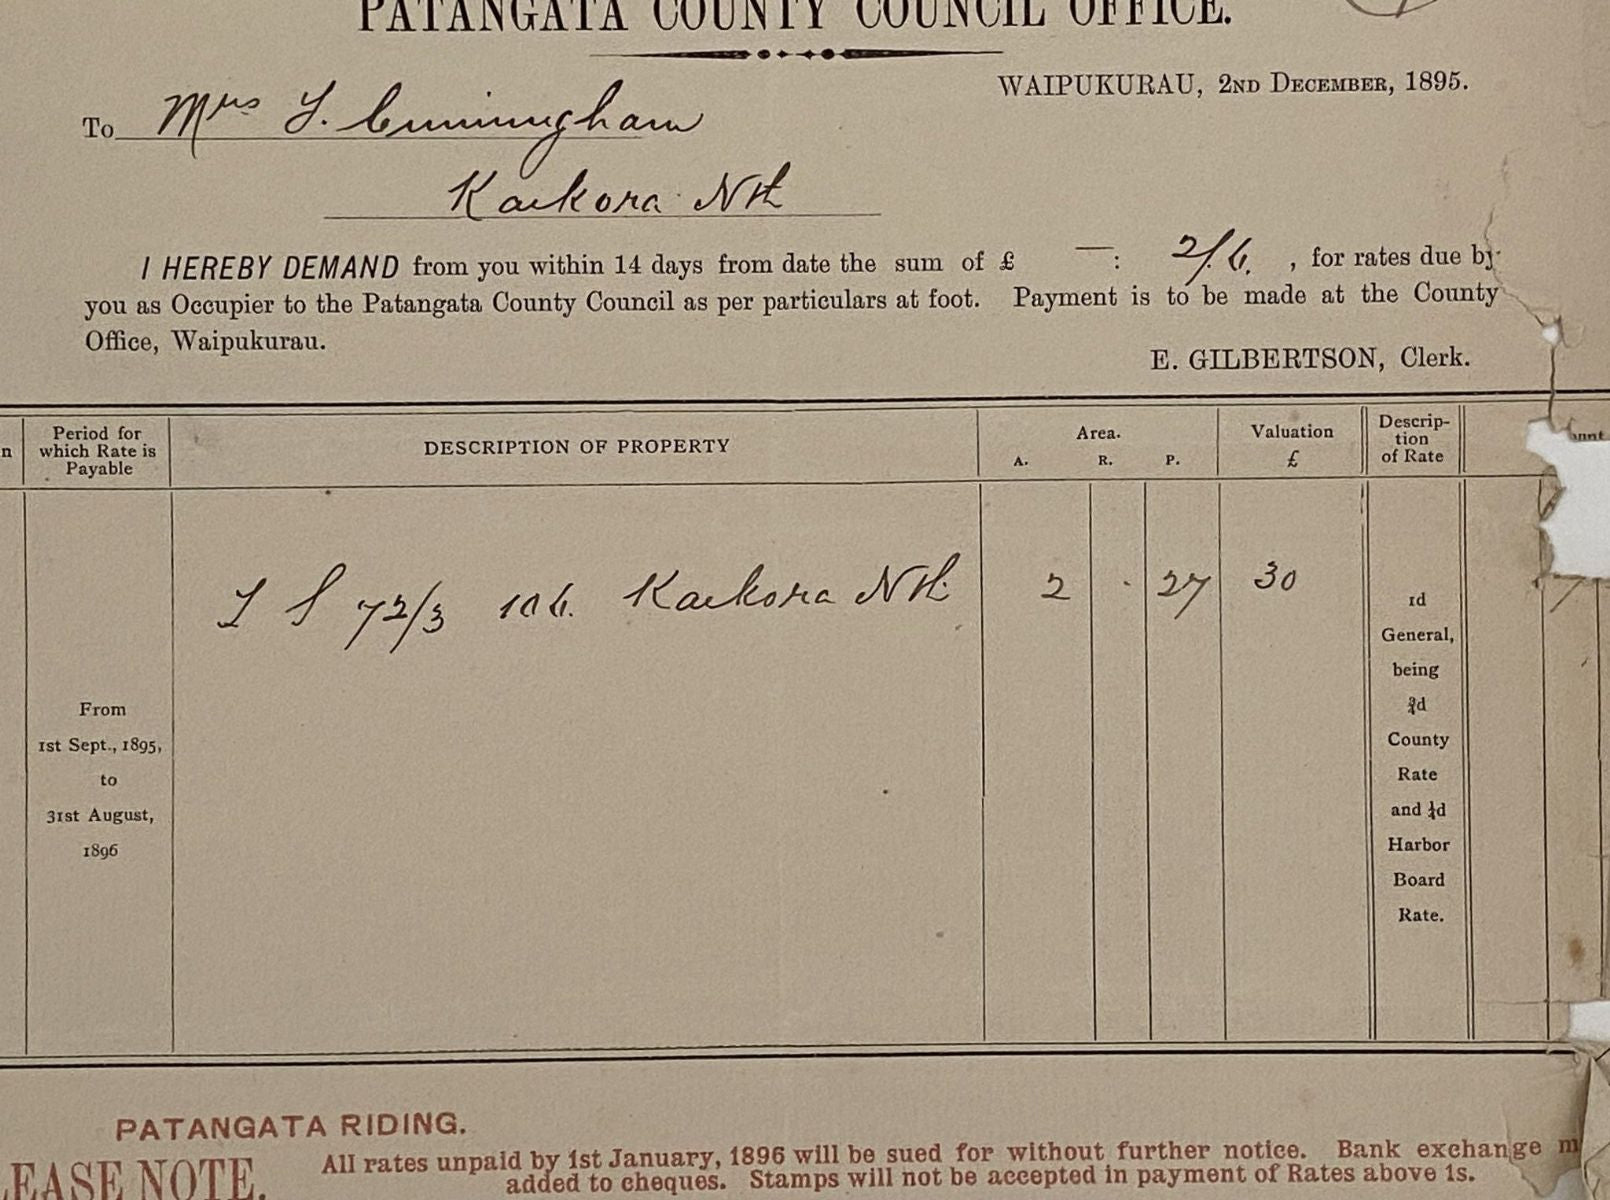 PATANGATA COUNTY COUNCIL OFFICE.
WAIPUKURAU, 2ND DECEMBER, 1895.
To Mrs Y. Cunningham
Kaikora Nth
I HEREBY DEMAND from you within 14 days from date the sum of £ — : 2/6. , for rates due by
you as Occupier to the Patangata County Council as per particulars at foot. Payment is to be made at the County
Office, Waipukurau.
E. GILBERTSON, Clerk.
Period for which Rate is Payable
DESCRIPTION OF PROPERTY
Area.
A. R. P.
Valuation £
Descrip-
tion
of Rate
72/3 106. Kaikora Nth. 2 . 27 30
From
1st Sept., 1895,
to
31st August,
1896
1d
General,
being
¾d
County
Rate
and ¼d
Harbor
Board
Rate.
PATANGATA RIDING.
LEASE NOTE.
All rates unpaid by 1st January, 1896 will be sued for without further notice. Bank exchange m
added to cheques. Stamps will not be accepted in payment of Rates above 1s.